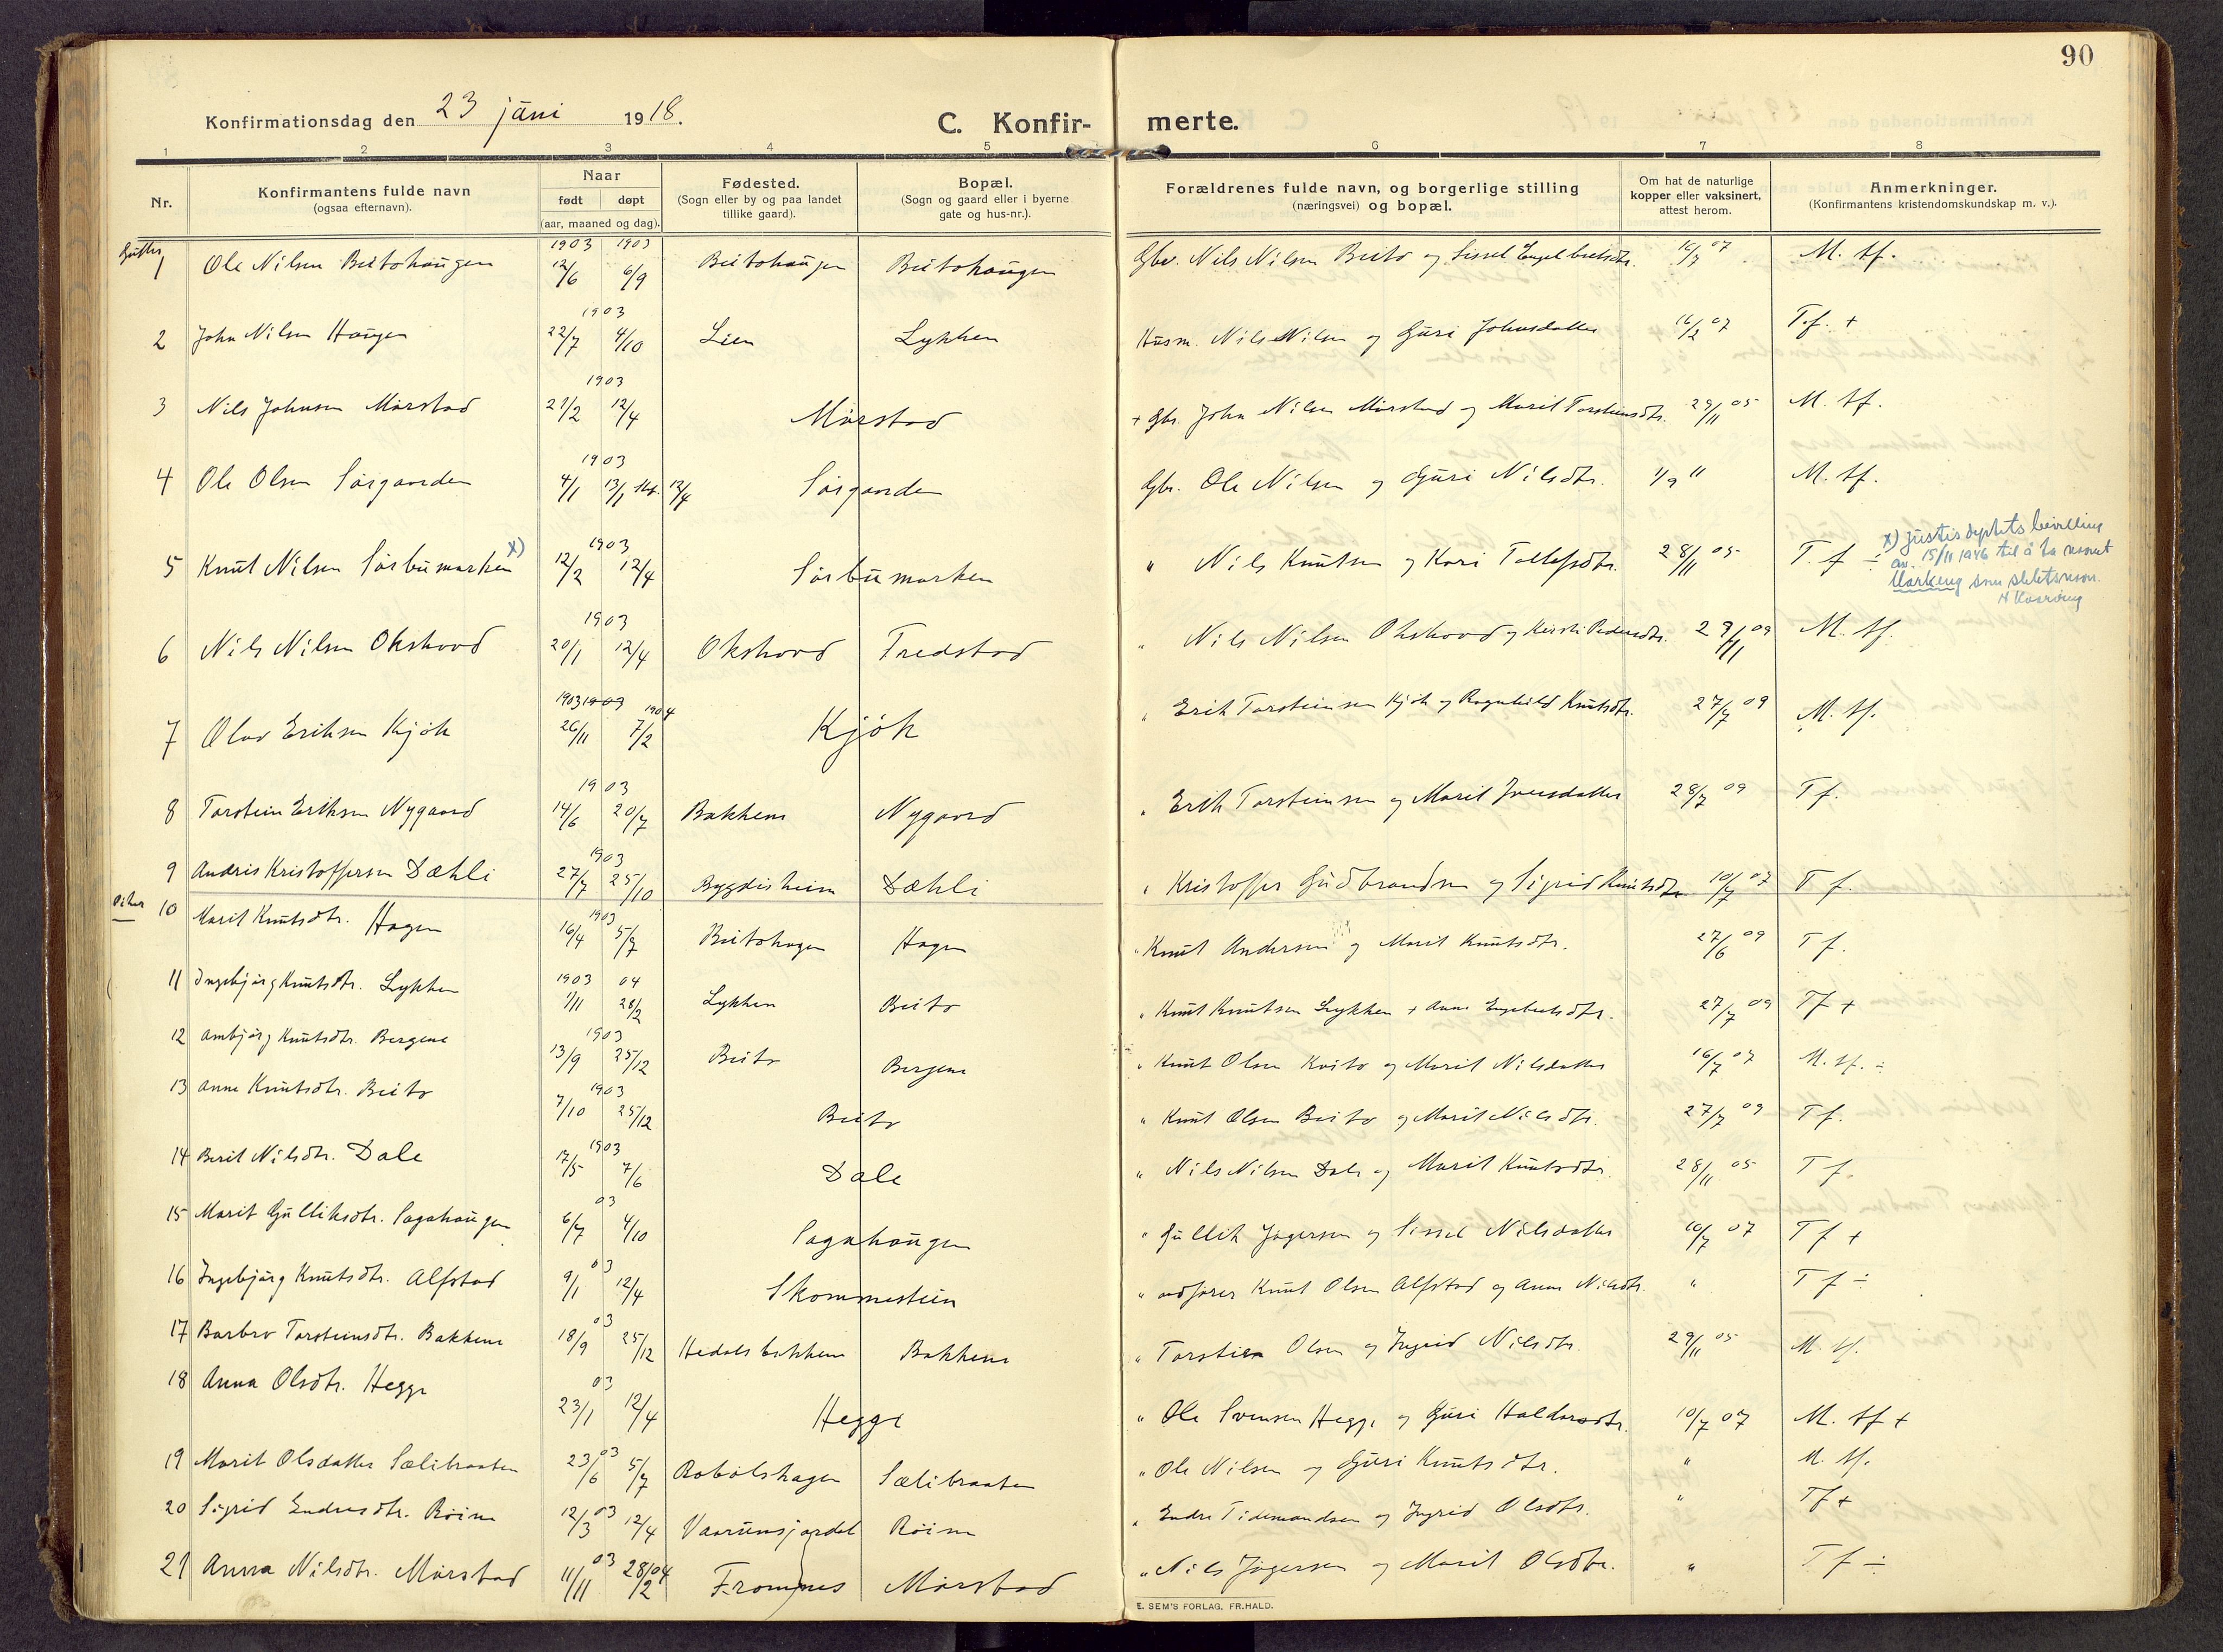 90
Konfirmationsdag den 23 juni 1918.
C. Konfir- merte.
1 2 3 4 5 6 7 8
Nr.
Konfirmantens fulde navn
(ogsaa efternavn).
Naar
født døpt
(aar, maaned og dag).
Fødested.
(Sogn eller by og paa landet
tillike gaard).
Bopæl.
(Sogn og gaard eller i byerne
gate og hus-nr.).
Forældrenes fulde navn, og borgerlige stilling
(næringsvei) og bopæl.
Om hat de naturlige
kopper eller vaksinert,
attest herom.
Anmerkninger.
(Konfirmantens kristendomskundskap m. v.).
Gutter
1903 1903
1 Ole Nilsen Beitohaugen 12/6 6/9 Beitohaugen Beitohaugen Gbr. Nils Nilsen Beito og Sissel Engelbretsdtr. 07 M. tf.
1903
2 John Nilsen Haugen 22/7 4/10 Lien Lykken Husm. Nils Nilsen og Guri Johnsdatter 16/2 07 T.f. +
1903
3 Nils Johnsen Mørstad 21/2 12/4 Mørstad + Gbr. John Nilsen Mørstad og Marit Torsteinsdtr. 29/11 05 M. tf.
1903
4 Ole Olsen Sørgaarden 4/1 13/1 12/4 Sørgaarden Gbr. Ole Nilsen og Guri Nilsdtr. 1/9 " M. tf.
1903
5 Knut Nilsen Sørbumarken x) 12/2 12/4 Sørbumarken " Nils Knutsen og Kari Tollefsdtr. 28/11 05 T. f ÷
x) justisdeptets bevilling
av. 15/11 1946 til å ta navnet
som slektsnavn.
1903
6 Nils Nilsen Okshovd 20/1 12/4 Okshovd Fredstad " Nils Nilsen Okshovd og Kersti Pedersdtr. 29/11 09 M. tf.
1903 1903 1904
7 Olav Eriksen Kjøk 26/11 7/2 Kjøk " Erik Torsteinsen Kjøk og Ragnhild Knutsdtr. 27/7 09 M. tf.
1903
8 Torstein Eriksen Nygaard 14/6 20/7 Bakkene Nygaard " Erik Torsteinsen og Marit Iversdatter 28/7 09 T f.
1903
9 Andris Kristoffersen Dæhli 27/7 25/10 Bygdisheim Dæhli " Kristoffer Gudbrandsen og Sigrid Knutsdtr 10/7 07 T f.
Piker
1903
10 Marit Knutsdtr. Hagen 16/4 5/7 Beitohagen Hagen " Knut Andersen og Marit Knutsdtr. 27/6 09 T f.
1903 04
11 Ingebjørg Knutsdtr. Lykken 1/11 28/2 Lykken Beito " Knut Knutsen Lykken + Anne Engebretsdtr. 27/7 09 Tf +
1903
12 Ambjørg Knutsdtr. Bergene 13/9 25/12 Beito Bergene " Knut Olsen og Marit Nilsdatter 16/7 07 M. tf. ÷
1903
13 Anne Knutsdtr. Beito 7/10 25/12 Beito " Knut Olsen Beito og Marit Nilsdtr. 27/7 09 T f.
1903
14 Berit Nilsdtr. Dale 17/5 7/6 Dale " Nils Nilsen Dale og Marit Knutsdtr. 28/11 05 T f.
03
15 Marit Gulliksdtr. Sagahaugen 6/7 4/10 Sagahaugen " Gullik Jøgersen og Sissel Nilsdatter 10/7 07 T f +
03
16 Ingebjørg Knutsdtr. Alfstad 9/1 12/4 Skommestein " ordfører Knut Olsen Alfstad og Anne Nilsdtr. " T f ÷
03
17 Barbro Torsteinsdtr. Bakkene 18/9 25/12 Hedalsbakken Bakkene " Torstein Olsen og Ingrid Nilsdtr. 29/11 05 M. tf.
03
18 Anna Olsdtr. Hegge 23/1 12/4 Hegge " Ole Svensen Hegge og Guri Haldorsdtr. 10/7 07 M. tf +
03
19 Marit Olsdatter Sælibraaten 23/6 5/7 Robølshagen Sælibraaten " Ole Nilsen og Guri Knutsdtr. " M. tf.
03
20 Sigrid Endresdtr. Røine 12/3 12/4 Røine " Endre Tidemandsen og Ingrid Olsdtr. " Tf +
03
21 Anna Nilsdtr. Mørstad 11/11 28/2 04 Mørstad " Nils Jøgersen og Marit Olsdtr. " T f ÷
E. SEM'S FORLAG, FR.HALD.